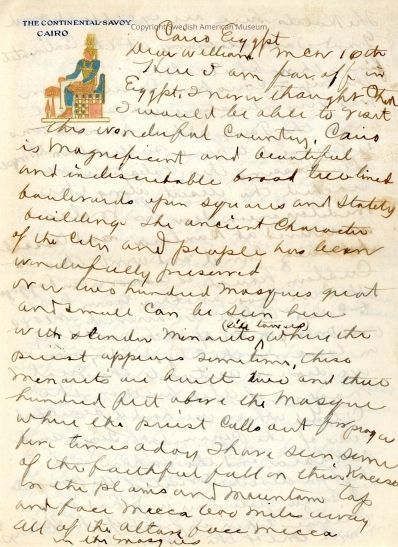 Copyright Swedish American Museum
THE CONTINENTAL-SAVOY
CAIRO
Cairo Egypt
Dear William Mch 10th
Here I am far off in
Egypt I never thought that
I would be able to visit
this wonderful Country, Cairo
is magnificent and beautiful
and indescribable broad tree lined
boulevards open squares and Stately
building. The ancient Character
of the City and people has been
wonderfully preserved
over two hundred Mosques great
and small can be seen here
with slender Minarets, (side towers) where the
priest appears sometime, these
menarets are built two and three
hundred feet above the Mosque
where the priest calls out for prayer
five times a day I have seen some
of the faithful fall on their Knees
on the plains and mountain top
and face Mecca 600 miles away
all of the altars face mecca
in the mosques